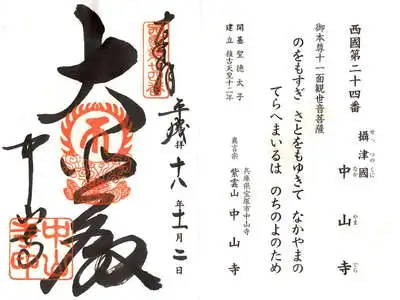 西國第二十四番
攝津國 中山寺
せっつのくに なかやまでら
御本尊十一面観世音菩薩
のをもすぎ さとをもゆきて なかやまの
てらへまいるは のちのよのため
開基 聖德太子
建立 推古天皇十二年
兵庫県宝塚市中山寺
真言宗 紫雲山 中山寺
奉拝
平成十八年十一月二日
大悲殿
中山寺